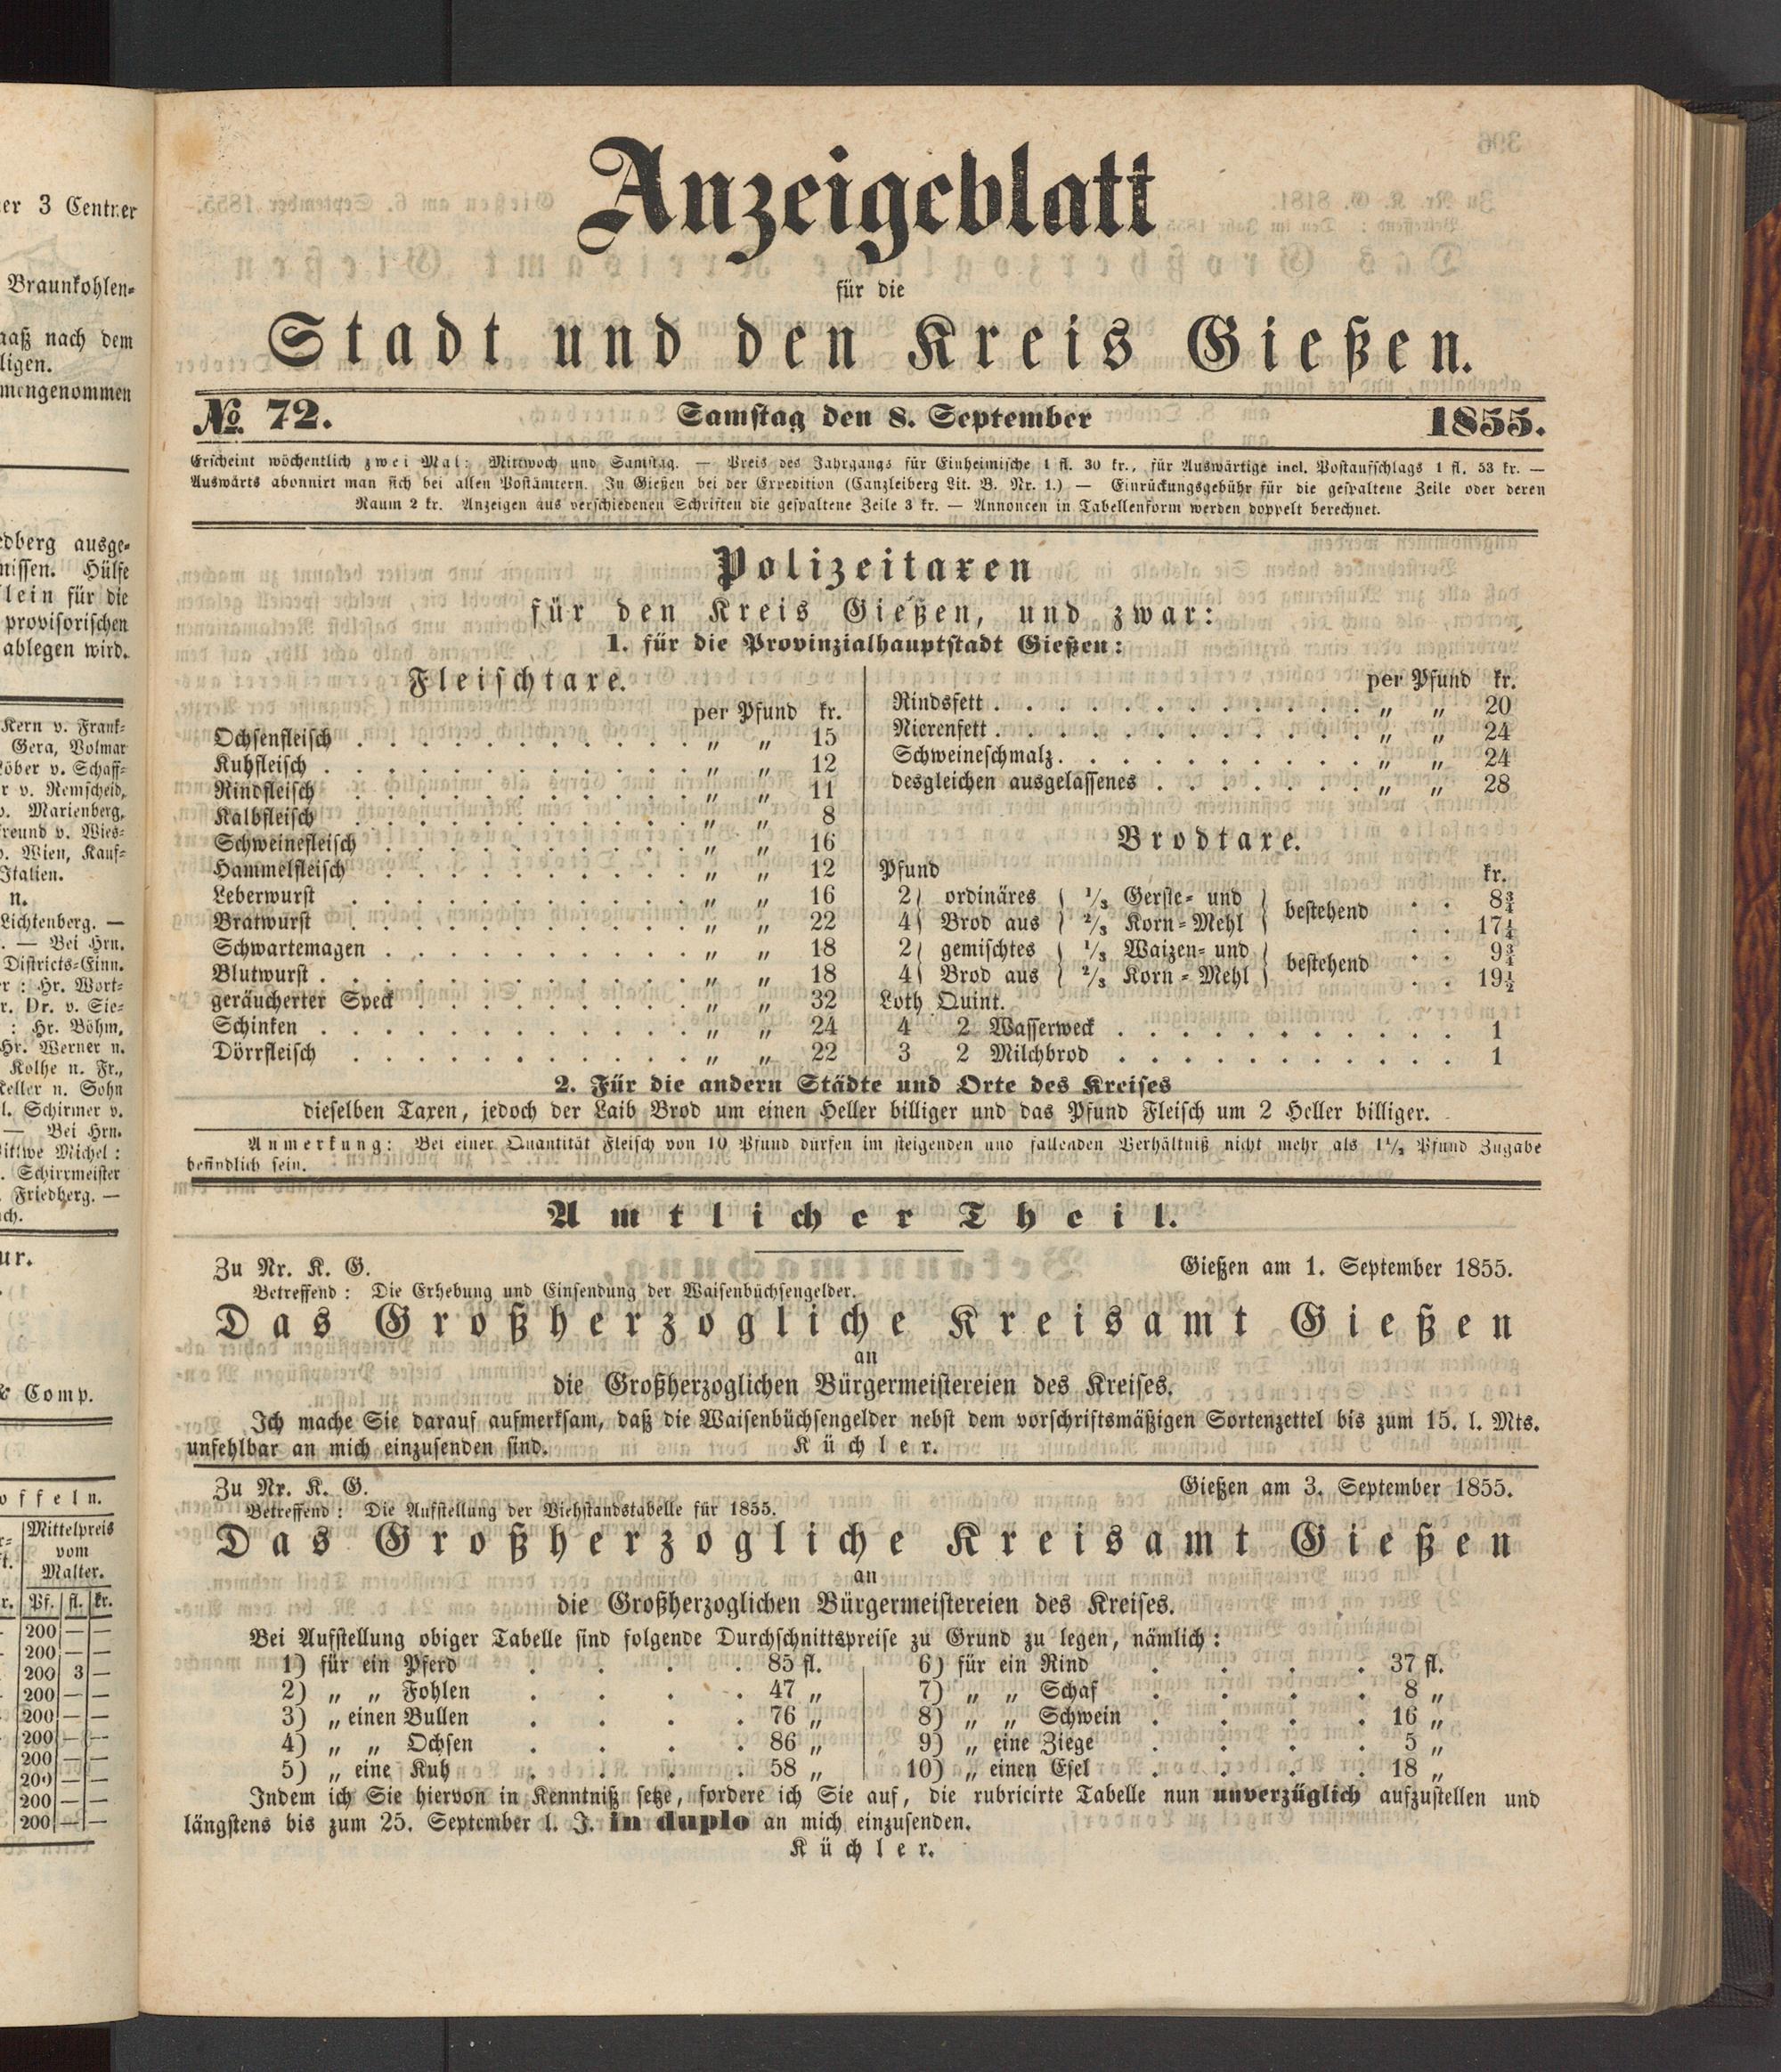 er 3 Centner
Braunkohlen-
aaß nach dem
ligen.
mengenommen
edberg ausge-
nissen. Hülfe
lein für die
provisorischen
ablegen wird.
Kern v. Frank-
Gera, Volmar
Löber v. Schaff-
r v. Remscheid,
v. Marienberg,
reund v. Wies-
v. Wien, Kauf-
Italien.
n.
Lichtenberg. —
. — Bei Hrn.
Districts-Einn.
er : Hr. Wort-
r. Dr. v. Sie-
: Hr. Böhm,
Hr. Werner n.
Kolhe n. Fr.,
Keller n. Sohn
l. Schirmer v.
— Bei Hrn.
Wittwe Michel :
. Schirrmeister
Friedberg. —
ch.
ur.
& Comp.
offeln.
Mittelpreis
vom
Malter.
r. Pf. fl. kr.
200 — —
200 — —
200 3 —
200 — —
200 — —
200 — —
200 — —
200 — —
200 — —
200 — —
Anzeigeblatt
für die
Stadt und den Kreis Gießen.
No. 72. Samstag den 8. September 1855.
Erscheint wöchentlich zwei Mal: Mittwoch und Samstag. — Preis des Jahrgangs für Einheimische 1 fl. 30 kr., für Auswärtige incl. Postaufschlags 1 fl. 53 kr. —
Auswärts abonnirt man sich bei allen Postämtern. In Gießen bei der Expedition (Canzleiberg Lit. B. Nr. 1.) — Einrückungsgebühr für die gespaltene Zeile oder deren
Raum 2 kr. Anzeigen aus verschiedenen Schriften die gespaltene Zeile 3 kr. — Annoncen in Tabellenform werden doppelt berechnet.
Polizeitaxen
für den Kreis Gießen, und zwar:
1. für die Provinzialhauptstadt Gießen:
Fleischtaxe.
per Pfund kr.
Ochsenfleisch . . . . . . . . . . . „ „ 15
Kuhfleisch . . . . . . . . . . . . „ „ 12
Rindfleisch . . . . . . . . . . . „ „ 11
Kalbfleisch . . . . . . . . . . . „ „ 8
Schweinefleisch . . . . . . . . . . „ „ 16
Hammelfleisch . . . . . . . . . . „ „ 12
Leberwurst . . . . . . . . . . . „ „ 16
Bratwurst . . . . . . . . . . . „ „ 22
Schwartemagen . . . . . . . . . . „ „ 18
Blutwurst . . . . . . . . . . . . „ „ 18
geräucherter Speck . . . . . . . . . „ „ 32
Schinken . . . . . . . . . . . . „ „ 24
Dörrfleisch . . . . . . . . . . . „ „ 22
per Pfund kr.
Rindsfett . . . . . . . . . . . . „ „ 20
Nierenfett . . . . . . . . . . . . „ „ 24
Schweineschmalz . . . . . . . . . . „ „ 24
desgleichen ausgelassenes . . . . . . . „ „ 28
Brodtaxe.
Pfund kr.
2 } ordinäres { 1/3 Gerste- und } bestehend . . 8¾
4 } Brod aus { 2/3 Korn-Mehl } . . 17¼
2 } gemischtes { 1/3 Waizen- und } bestehend . . 9¾
4 } Brod aus { 2/3 Korn-Mehl } . . 19½
Loth Quint.
4 2 Wasserweck . . . . . . . . . . 1
3 2 Milchbrod . . . . . . . . . . 1
2. Für die andern Städte und Orte des Kreises
dieselben Taxen, jedoch der Laib Brod um einen Heller billiger und das Pfund Fleisch um 2 Heller billiger.
Anmerkung: Bei einer Quantität Fleisch von 10 Pfund dürfen im steigenden und fallenden Verhältniß nicht mehr als 1½ Pfund Zugabe
befindlich sein.
Amtlicher Theil.
Zu Nr. K. G. Gießen am 1. September 1855.
Betreffend: Die Erhebung und Einsendung der Waisenbüchsengelder.
Das Großherzogliche Kreisamt Gießen
an
die Großherzoglichen Bürgermeistereien des Kreises.
Ich mache Sie darauf aufmerksam, daß die Waisenbüchsengelder nebst dem vorschriftsmäßigen Sortenzettel bis zum 15. l. Mts.
unfehlbar an mich einzusenden sind. Küchler.
Zu Nr. K. G. Gießen am 3. September 1855.
Betreffend: Die Aufstellung der Viehstandstabelle für 1855.
Das Großherzogliche Kreisamt Gießen
an
die Großherzoglichen Bürgermeistereien des Kreises.
Bei Aufstellung obiger Tabelle sind folgende Durchschnittspreise zu Grund zu legen, nämlich:
1) für ein Pferd . . . . 85 fl.
2) „ „ Fohlen . . . . 47 „
3) „ einen Bullen . . . . 76 „
4) „ „ Ochsen . . . . 86 „
5) „ eine Kuh . . . . 58 „
6) für ein Rind . . . . 37 fl.
7) „ „ Schaf . . . . 8 „
8) „ „ Schwein . . . . 16 „
9) „ eine Ziege . . . . 5 „
10) „ einen Esel . . . . 18 „
Indem ich Sie hiervon in Kenntniß setze, fordere ich Sie auf, die rubricirte Tabelle nun unverzüglich aufzustellen und
längstens bis zum 25. September l. J. in duplo an mich einzusenden.
Küchler.